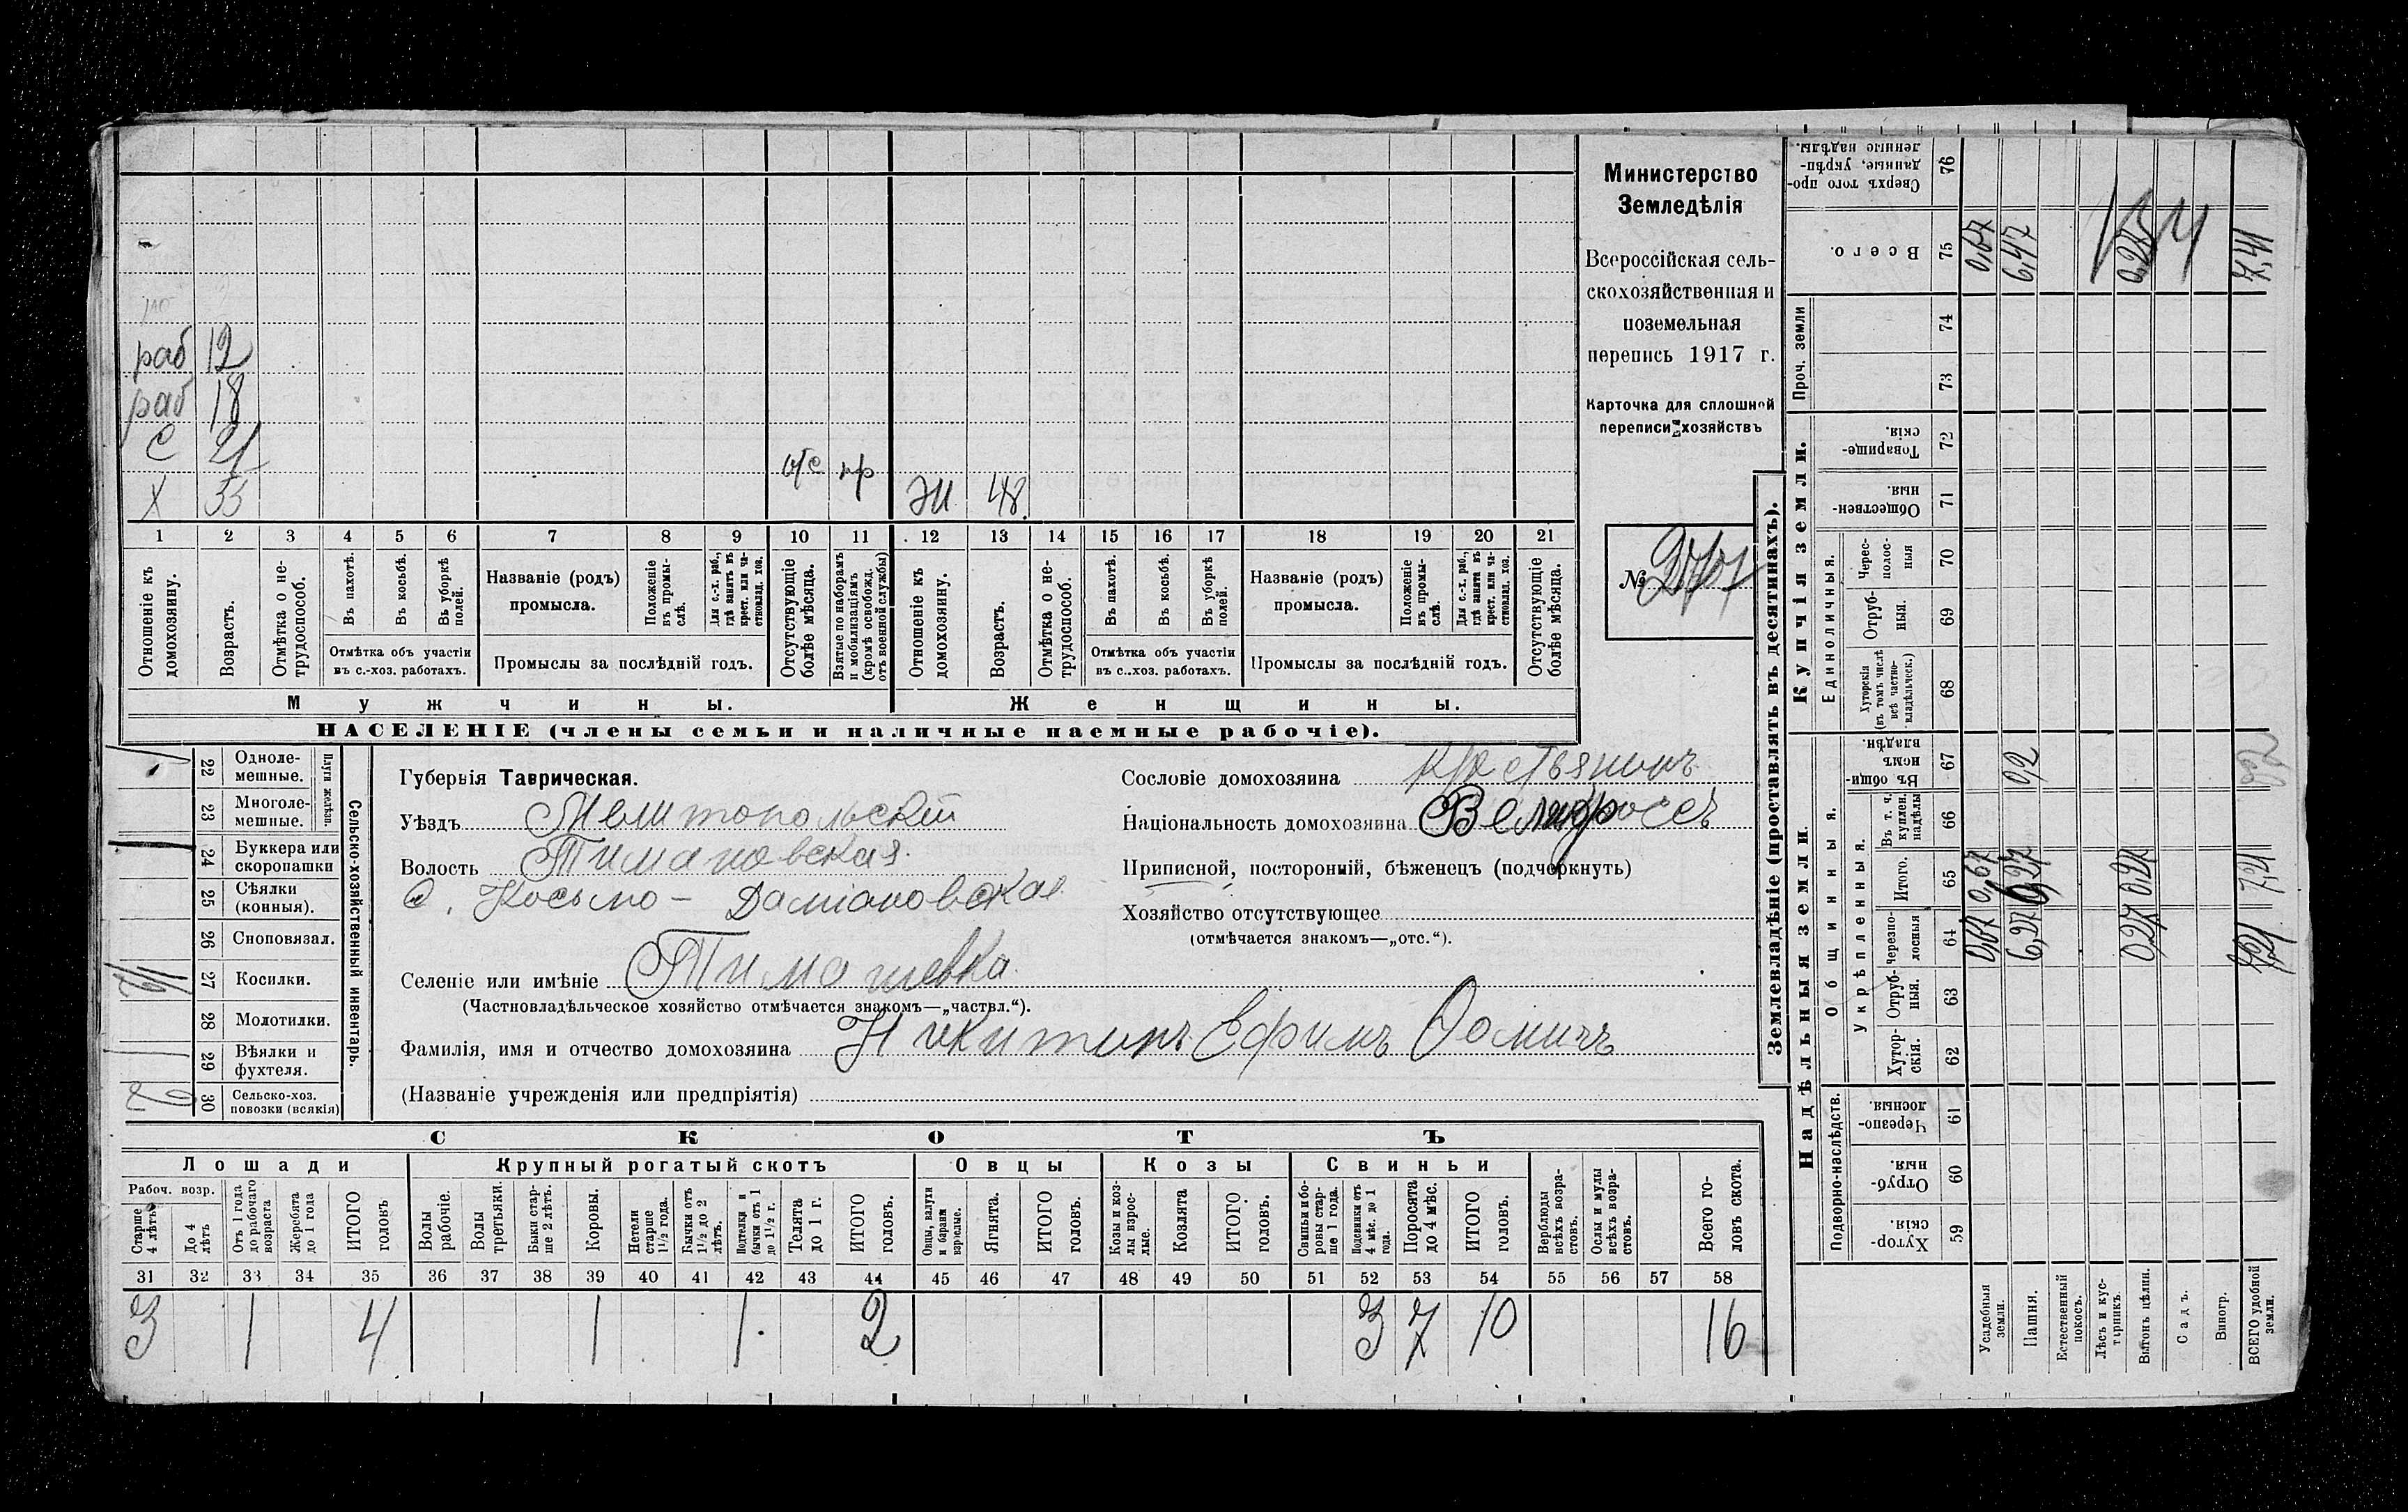 раб 12
раб 18
С 21
Х 55
отс
Ж 48.
1 2 3 4 5 6 7 8 9 10 11 12 13 14 15 16 17 18 19 20 21
Отношеніе къ домохозяину.
Возрастъ.
Отмѣтка о не-трудоспособ.
Въ пахотѣ.
Въ косьбѣ.
Въ уборкѣ полей.
Отмѣтка объ участіи
въ с.-хоз. работахъ.
Названіе (родъ)
промысла.
Положеніе въ промы-слѣ.
Для с.-х. раб., гдѣ занятъ въ крест. или ча-стновлад. хоз.
Промыслы за послѣдній годъ.
Отсутствующіе болѣе мѣсяца.
Взятые по наборамъ и мобилизаціямъ (кромѣ освобожд. отъ военной службы)
Отношеніе къ домохозяину.
Возрастъ.
Отмѣтка о не-трудоспособ.
Въ пахотѣ.
Въ косьбѣ.
Въ уборкѣ полей.
Отмѣтка объ участіи
въ с..хоз. работахъ.
Названіе (родъ)
промысла.
Положеніе въ промы-слѣ.
Для с.-х. раб., гдѣ занята въ крест. или ча-стновлад. хоз.
Промыслы за послѣдній годъ.
Отсутствующіе болѣе мѣсяца.
Мужчины.
Женщины.
НАСЕЛЕНІЕ (члены семьи и наличные наемные рабочіе).
Министерство
Земледѣлія
Всероссійская сель-
скохозяйственная и
поземельная
перепись 1917 г.
Карточка для сплошной
переписи хозяйствъ
№
22 Одноле-мешные.
23 Многоле-мешные.
Плуги желѣзн.
24 Буккера или скоропашки
25 Сѣялки (конныя).
26 Сноповязал.
27 Косилки.
28 Молотилки.
29 Вѣялки и фухтеля.
30 Сельско-хоз. повозки (всякія)
Сельско-хозяйственный инвентарь.
Губернія Таврическая.
Уѣздъ Мелитопольскій
Волость Тимановская
С. Косьмо-Даміановская
Селеніе или имѣніе Тимашевка
(Частновладѣльческое хозяйство отмѣчается знакомъ—„частвл.“).
Фамилія, имя и отчество домохозяина Никитинъ Ефимъ Ѳомичъ
(Названіе учрежденія или предпріятія)
Сословіе домохозяина крестьянинъ
Національность домохозяина Великороссъ
Приписной, посторонній, бѣженецъ (подчеркнуть)
Хозяйство отсутствующее
(отмѣчается знакомъ—„отс.“).
СКОТЪ
Лошади
Крупный рогатый скотъ
Овцы
Козы
Свиньи
Рабоч. возр.
Старше 4 лѣтъ
До 4 лѣтъ
Отъ 1 года до рабочаго возраста
Жеребята до 1 года
ИТОГО головъ
Волы рабочіе.
Волы третьяки.
Быки стар-ше 2 лѣтъ.
Коровы.
Нетели старше 1 1/2 года.
Бычки отъ 1 1/2 до 2 лѣтъ.
Подтелки и бычки отъ 1 до 1 1/2 г.
Телята до 1 г.
ИТОГО головъ.
Овцы, валухи и бараны взрослые.
Ягнята.
ИТОГО головъ.
Козы и коз-лы взрос-лые.
Козлята
ИТОГО головъ.
Свиньи и бо-ровы стар-ше 1 года.
Подсвинки отъ 4 мѣс. до 1 года.
Поросята до 4 мѣс.
ИТОГО головъ.
Верблюды всѣхъ возра-стовъ.
Ослы и мулы всѣхъ возра-стовъ.
Всего го-ловъ скота.
31 32 33 34 35 36 37 38 39 40 41 42 43 44 45 46 47 48 49 50 51 52 53 54 55 56 57 58
3 1 4 1 1 2 3 7 10 16
Землевладѣніе (проставлять въ десятинахъ).
Надѣльныя земли.
Купчія земли.
Проч. земли
Подворно-наслѣдств.
Общинныя.
Укрѣпленныя.
Единоличныя.
Хутор-скія. 59
Отруб-ныя. 60
Черезпо-лосныя. 61
Хутор-скія. 62
Отруб-ныя. 63
Черезпо-лосныя 64
Итого. 65
Въ т. ч. куплен. надѣлы 66
Въ общи-нномъ владѣн. 67
Хуторскія (въ томъ числѣ всѣ частно-владѣльческ.) 68
Отруб-ныя. 69
Черес-полос-ныя 70
Обществен-ныя. 71
Товарище-скія. 72
73
74
Всего. 75
Сверхъ того про-данные, укрѣп-ленные надѣлы. 76
Усадебныя земли. 0,67 0,67 0,67
Пашня. 6,27 6,27 0,2 6,47
Естественный покосъ.
Лѣсъ и кус-тарникъ.
Выгонъ цѣлин. 0,27 0,27 0,27
Садъ.
Виногр.
ВСЕГО удобной земли. 7,21 7,21 7,41